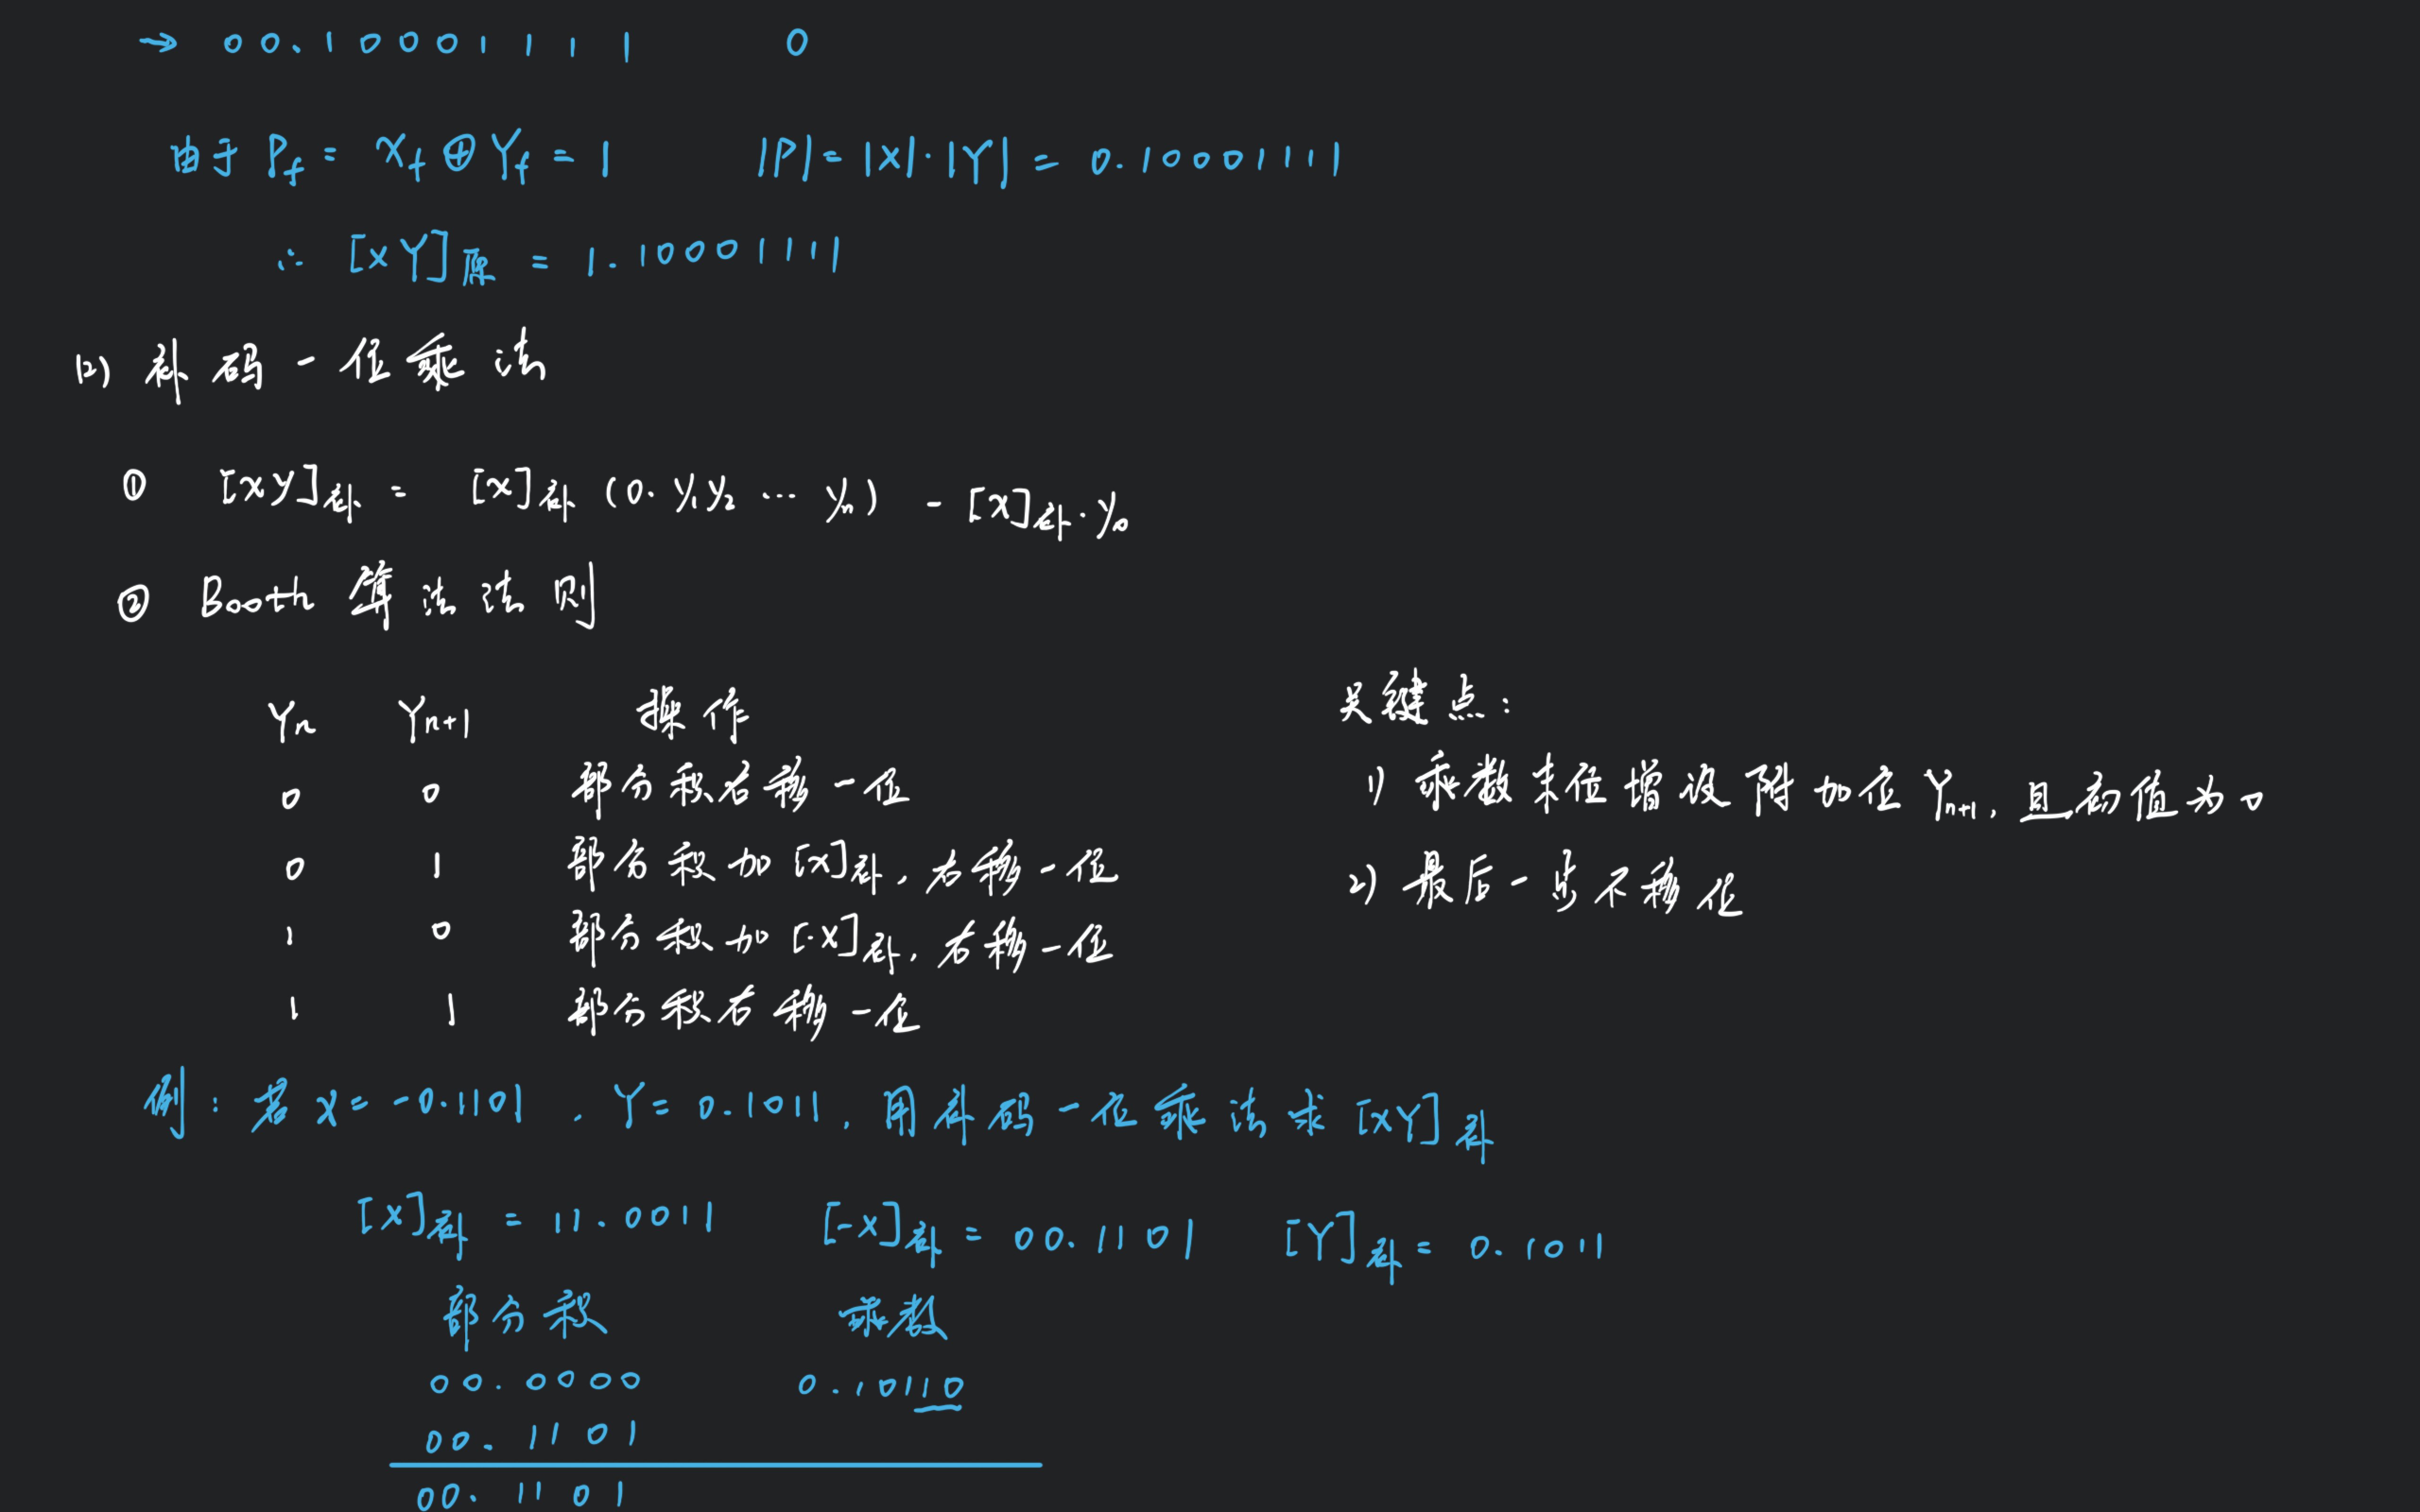 → 00.10001111 0
由于 Pf = Xf ⊕ Yf = 1 |P| = |X|·|Y| = 0.10001111
∴ [XY]原 = 1.10001111
(2) 补码一位乘法
① [XY]补 = [X]补 (0.y₁y₂…yₙ) - [X]补·y₀
② Booth 算法法则
Yn Yn+1 操作
0 0 部分积右移一位
0 1 部分积加[X]补, 右移一位
1 0 部分积加[-X]补, 右移一位
1 1 部分积右移一位
关键点:
1) 乘数末位增设附加位 Yn+1, 且初值为0
2) 最后一步不移位
例: 若 X = -0.1101, Y = 0.1011, 用补码一位乘法求[XY]补
[X]补 = 11.0011 [-X]补 = 00.1101 [Y]补 = 0.1011
部分积 乘数
00.0000 0.10110
00.1101
00.1101